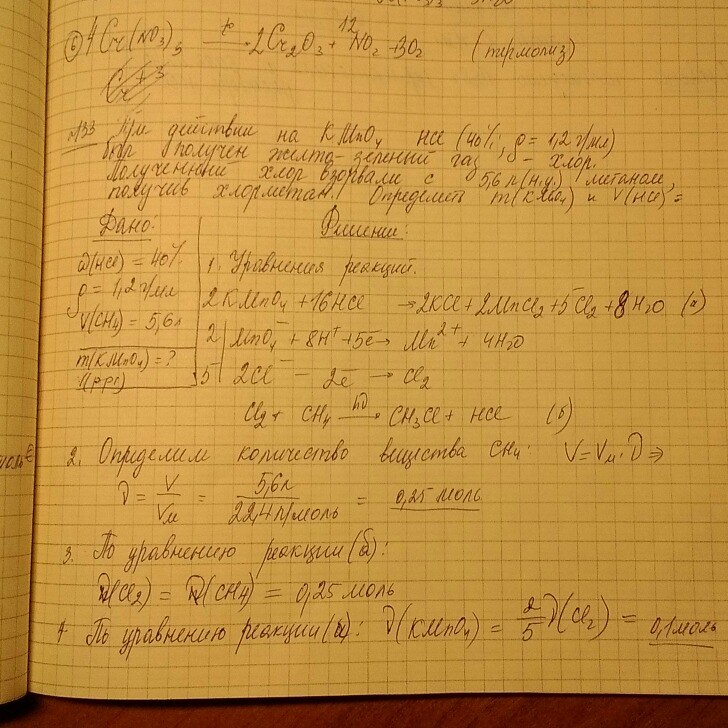 ⑥ 4Cr(NO₃)₃ —t°→ 2Cr₂O₃ + 12NO₂ + 3O₂ (термолиз)
№133 При действии на KMnO₄ HCl (40%, ρ = 1,2 г/мл)
был получен желто-зеленый газ – хлор.
Полученный хлор взорвали с 5,6 л (н.у.) метаном,
получив хлорметан. Определеть m(KMnO₄) и V(HCl) =
Дано:
ω(HCl) = 40%
ρ = 1,2 г/мл
V(CH₄) = 5,6 л
m(KMnO₄) = ?
V(р-ра)
Решение:
1. Уравнения реакций.
2KMnO₄ + 16HCl → 2KCl + 2MnCl₂ + 5Cl₂ + 8H₂O (а)
2 | MnO₄⁻ + 8H⁺ + 5e → Mn²⁺ + 4H₂O
5 | 2Cl⁻ – 2e → Cl₂
Cl₂ + CH₄ —hν→ CH₃Cl + HCl (б)
2. Определим количество вещества CH₄: V = Vм · ν ⇒
ν = V/Vм = 5,6 л/22,4 л/моль = 0,25 моль
3. По уравнению реакции (б):
ν(Cl₂) = ν(CH₄) = 0,25 моль
4. По уравнению реакции (а): ν(KMnO₄) = 2/5 ν(Cl₂) = 0,1 моль